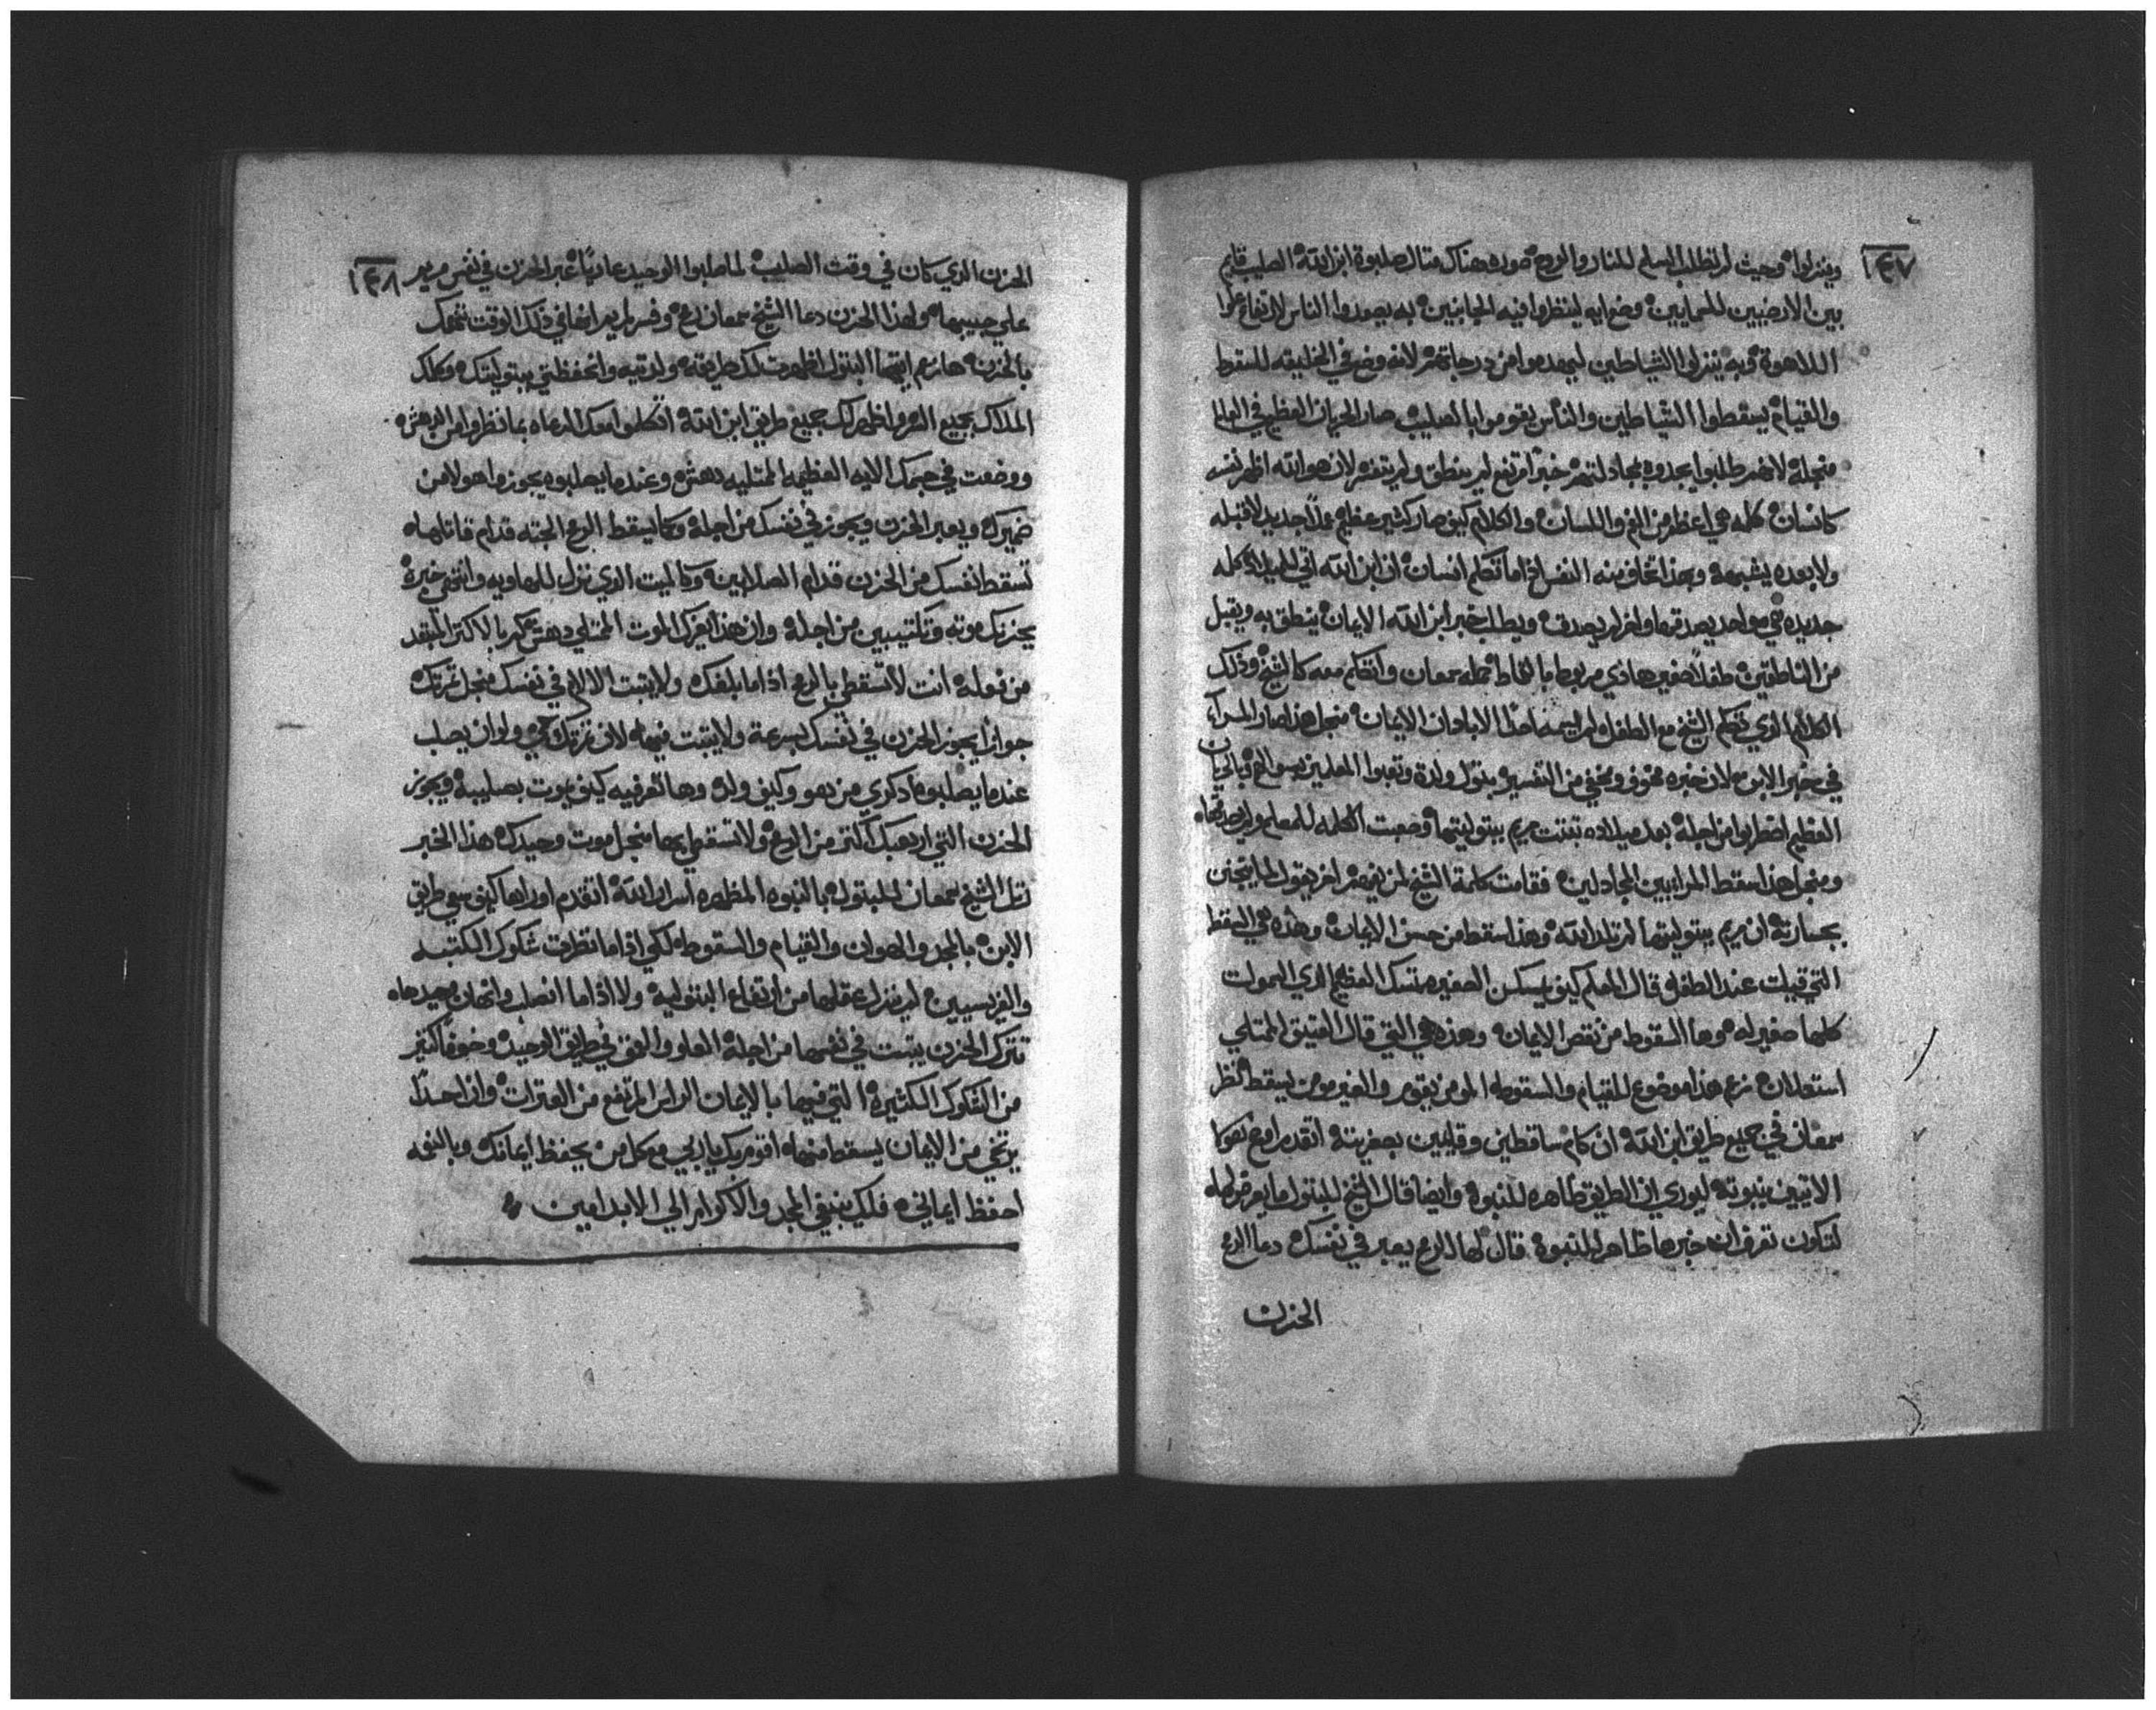 ١٤٧
وينزلوا وحيث لم تطلب السلم للنار والروح صوره هناك مثال صلبوة ابن الله الصليب قايم
بين الارضيين للسمايين وضع ايه لينظروا فيه الجانبين به يصعدوا الناس لارتفاع علوا
اللاهوة وبه ينزلوا الشياطين ليهدموا من درجاتهم لانه وضع في الخليقه للسقوط
والقيام يسقطوا الشياطين والناس يقوموا بالصليب صار الحربان العظيم في العالم
منجله لانهم طلبوا يجدوه بمجادلتهم خبرا مرتفع لم ينطق ولم يتفسر لان هو الله اظهر نفسه
كانسان كله هي اعظم من الفم واللسان والكلام كيف صار كشير عظيم عملا جديد لا قبله
ولا بعده يشبهه وبهذا تخاف منه النفس اذا ما تكلم انسان ان ابن الله اتي للميلاد كله
جديده في مواحد يصدقها واخر لم يصدق ويطلب خبر ابن الله الايمان ينطق به ويقبل
من الناطقين طفلا صغير هادي مربوط بالقماط حمله سمعان واتكلم معه كالشيخ وذلك
الكلام الذي تكلم الشيخ مع الطفل لم ليسمه احدا الا باذان الايمان منجل هذا صار المسرا
في خبر الابن لان خبره مخوف ومخفي من التفسير بتول ولدة وتعبوا المعلمين بسوالهم وبالحيان
العظيم اضطربوا من اجله بعد ميلاده تبتت مريم ببتوليتها وضعت الكلمه للمعلم ولم يصدقها
ومنجل هذا سقط المرايين المجادلين فقامت كلمة الشيخ لمن يفهم اخر يقول لما يتجنن
بجسارته ان مريم ببتوليتها لم تلد الله وهذا سقط من حسن الايمان وهذه هي السقطه
التي قبلت عند الطفل قال المعلم كيف يسكن الصغيره تمسك العظيم الذي السموات
كلها صغير له وها السقوط من نقص الايمان وهذه هي التي قال العتيق الممتلي
استعلان نزع هذا موضوع للقيام والسقوط المومن يقوم والغير مومن يسقط نظر
سمعان في جميع طريق ابن الله ان كام ساقطين وقايمين بصفر بته اتقدم اوع نعوكا
الاتيين بنبوته ليوري ان الطريق ظاهره للنبوة وايضا قال الشيخ للبتول ما يعرض لها
لتكون تعرف ان خبرها ظاهر للنبوة قال لها الرمح يعبر في نفسك دعا الرمح
الحزن
١٤٨
الحزن الذي كان في وقت الصليب لما صلبوا الوحيد عاديا عبر الحزن في نفس مريم
علي حبيبها ولهذا الحزن دعا الشيخ سمعان رمح وفسر لمريم ايضا في ذلك الوقت تتمسك
بالحزن هانم ايتها البتول اظهرت لك طريقه ولدتيه واتحفظتي ببتوليتك وكلك
الملاك بجميع السر واظهر لك جميع طريق ابن الله اتكلموا معك الرعاه بما نظروا من الدهشه
ووضعت في حجرك الايه العظيمه الممتليه دهش وعندما يصلبوه يجوزوا هولا من
ضميرك ويعبر الحزن ويجوز في نفسك من اجله وكما يسقط الرمح الجته قدام قاتلها
تسقط نفسك من الحزن قدام الصلابين وكالميت الذي نزل للهاويه وانتهي خبره
يحزنك موته وتكتيبين من اجله وان هذا يعزك الموت الممتلي دهش بالاكتر المبتعد
من نوله انت لا تسقطي بالرمح اذا ما بلغك ولا يتبت الالام في نفسك منجل ثمرتك
جوازا يجوز الحزن في نفسك بسرعة ولا يتبت فيها لان ثمرتك حي ولو ان يصلب
عندما يصلبوه اذكري من هو وكيف ولد وها تعرفيه كيف يموت بصليبه ويجوز
الحزن التي ارهبك اكتر من الرمح ولا تسقطي بها منجل موت وحيدك هذا الخبر
رتل الشيخ سمعان للبتول بالنبوه المظهره اسرار الله اتقدم اوراها كيف هي طريق
الابن بالمجد والهوان والقيام والسقوط لكي اذا ما نظرت شكوك الكتبه
والفريسيين لم ينزل عقلها من ارتفاع البتوليه ولا اذا ما انصلب واتهان وحيدها
تترك الحزن يتبت في نفسها من اجله العلو والعمق في طريق الوحيد وخوفا كتير
من الشكوك الكتيره التي فيها بالايمان الراس المرتفع من العترات وان احدا
يرتخي من الايمان يسقط منها اقومر بك يا ربي مع كل من يحفظ ايمانك وبالنعمه
احفظ ايماني فلك ينبغي المجد والاكرام الي الابد امين